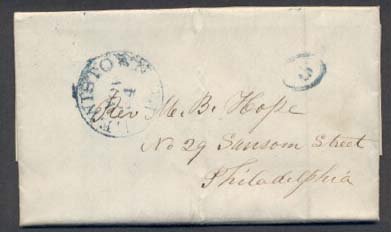 LEWISTOWN
5
Rev M. B. Hope
No 29 Sansom Street
Philadelphia